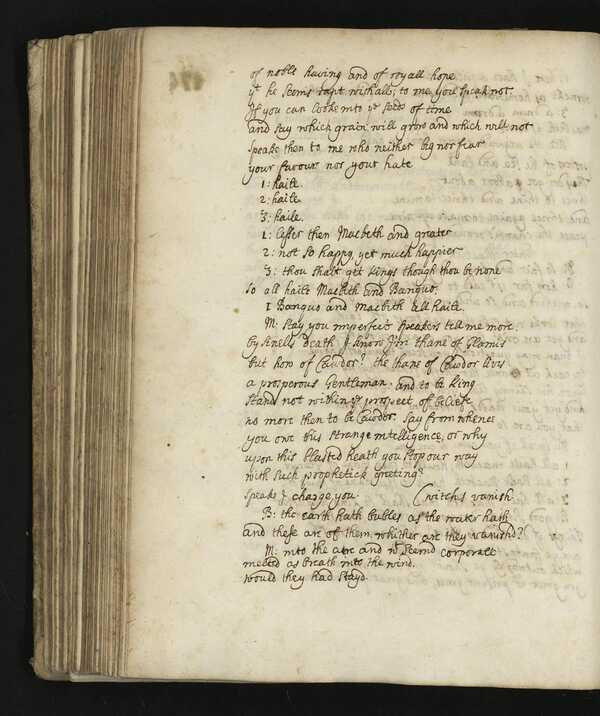 of noble having and of royall hope
yt he seems rapt wishall; to me you speak not
If you can looke into ye seeds of time
and say which grain will grow and which will not
speake then to me who neither beg nor fear
your favour nor your hate
1: haile.
2: haile.
3: haile.
1: lesser then Macbeth and greater
2: not so happy, yet much happier
3: thou shalt get kings though thou be none
so all haile Macbeth and Banquo.
1 Banquo and Macbeth all haile.
M: stay you imperfect speakers tell me more
by Sinells death I know I'm thane of Glamis
but how of Cawdor? the thane of Cawdor livs
a prosperous Gentleman. and to be king
stands not within ye prospect of beliefe
no more then to be Cawdor. say from whence
you owe this strange intelligence, or why
upon this blasted heath you stop our way
with such prophetick greeting?
speake I charge you. (witchs vanish
B: the earth hath bubles as the water hath
and these are of them. whither are they vanishd?
M: into the aire and wt seemd corporall
melted as breath into the wind.
would they had stayd.